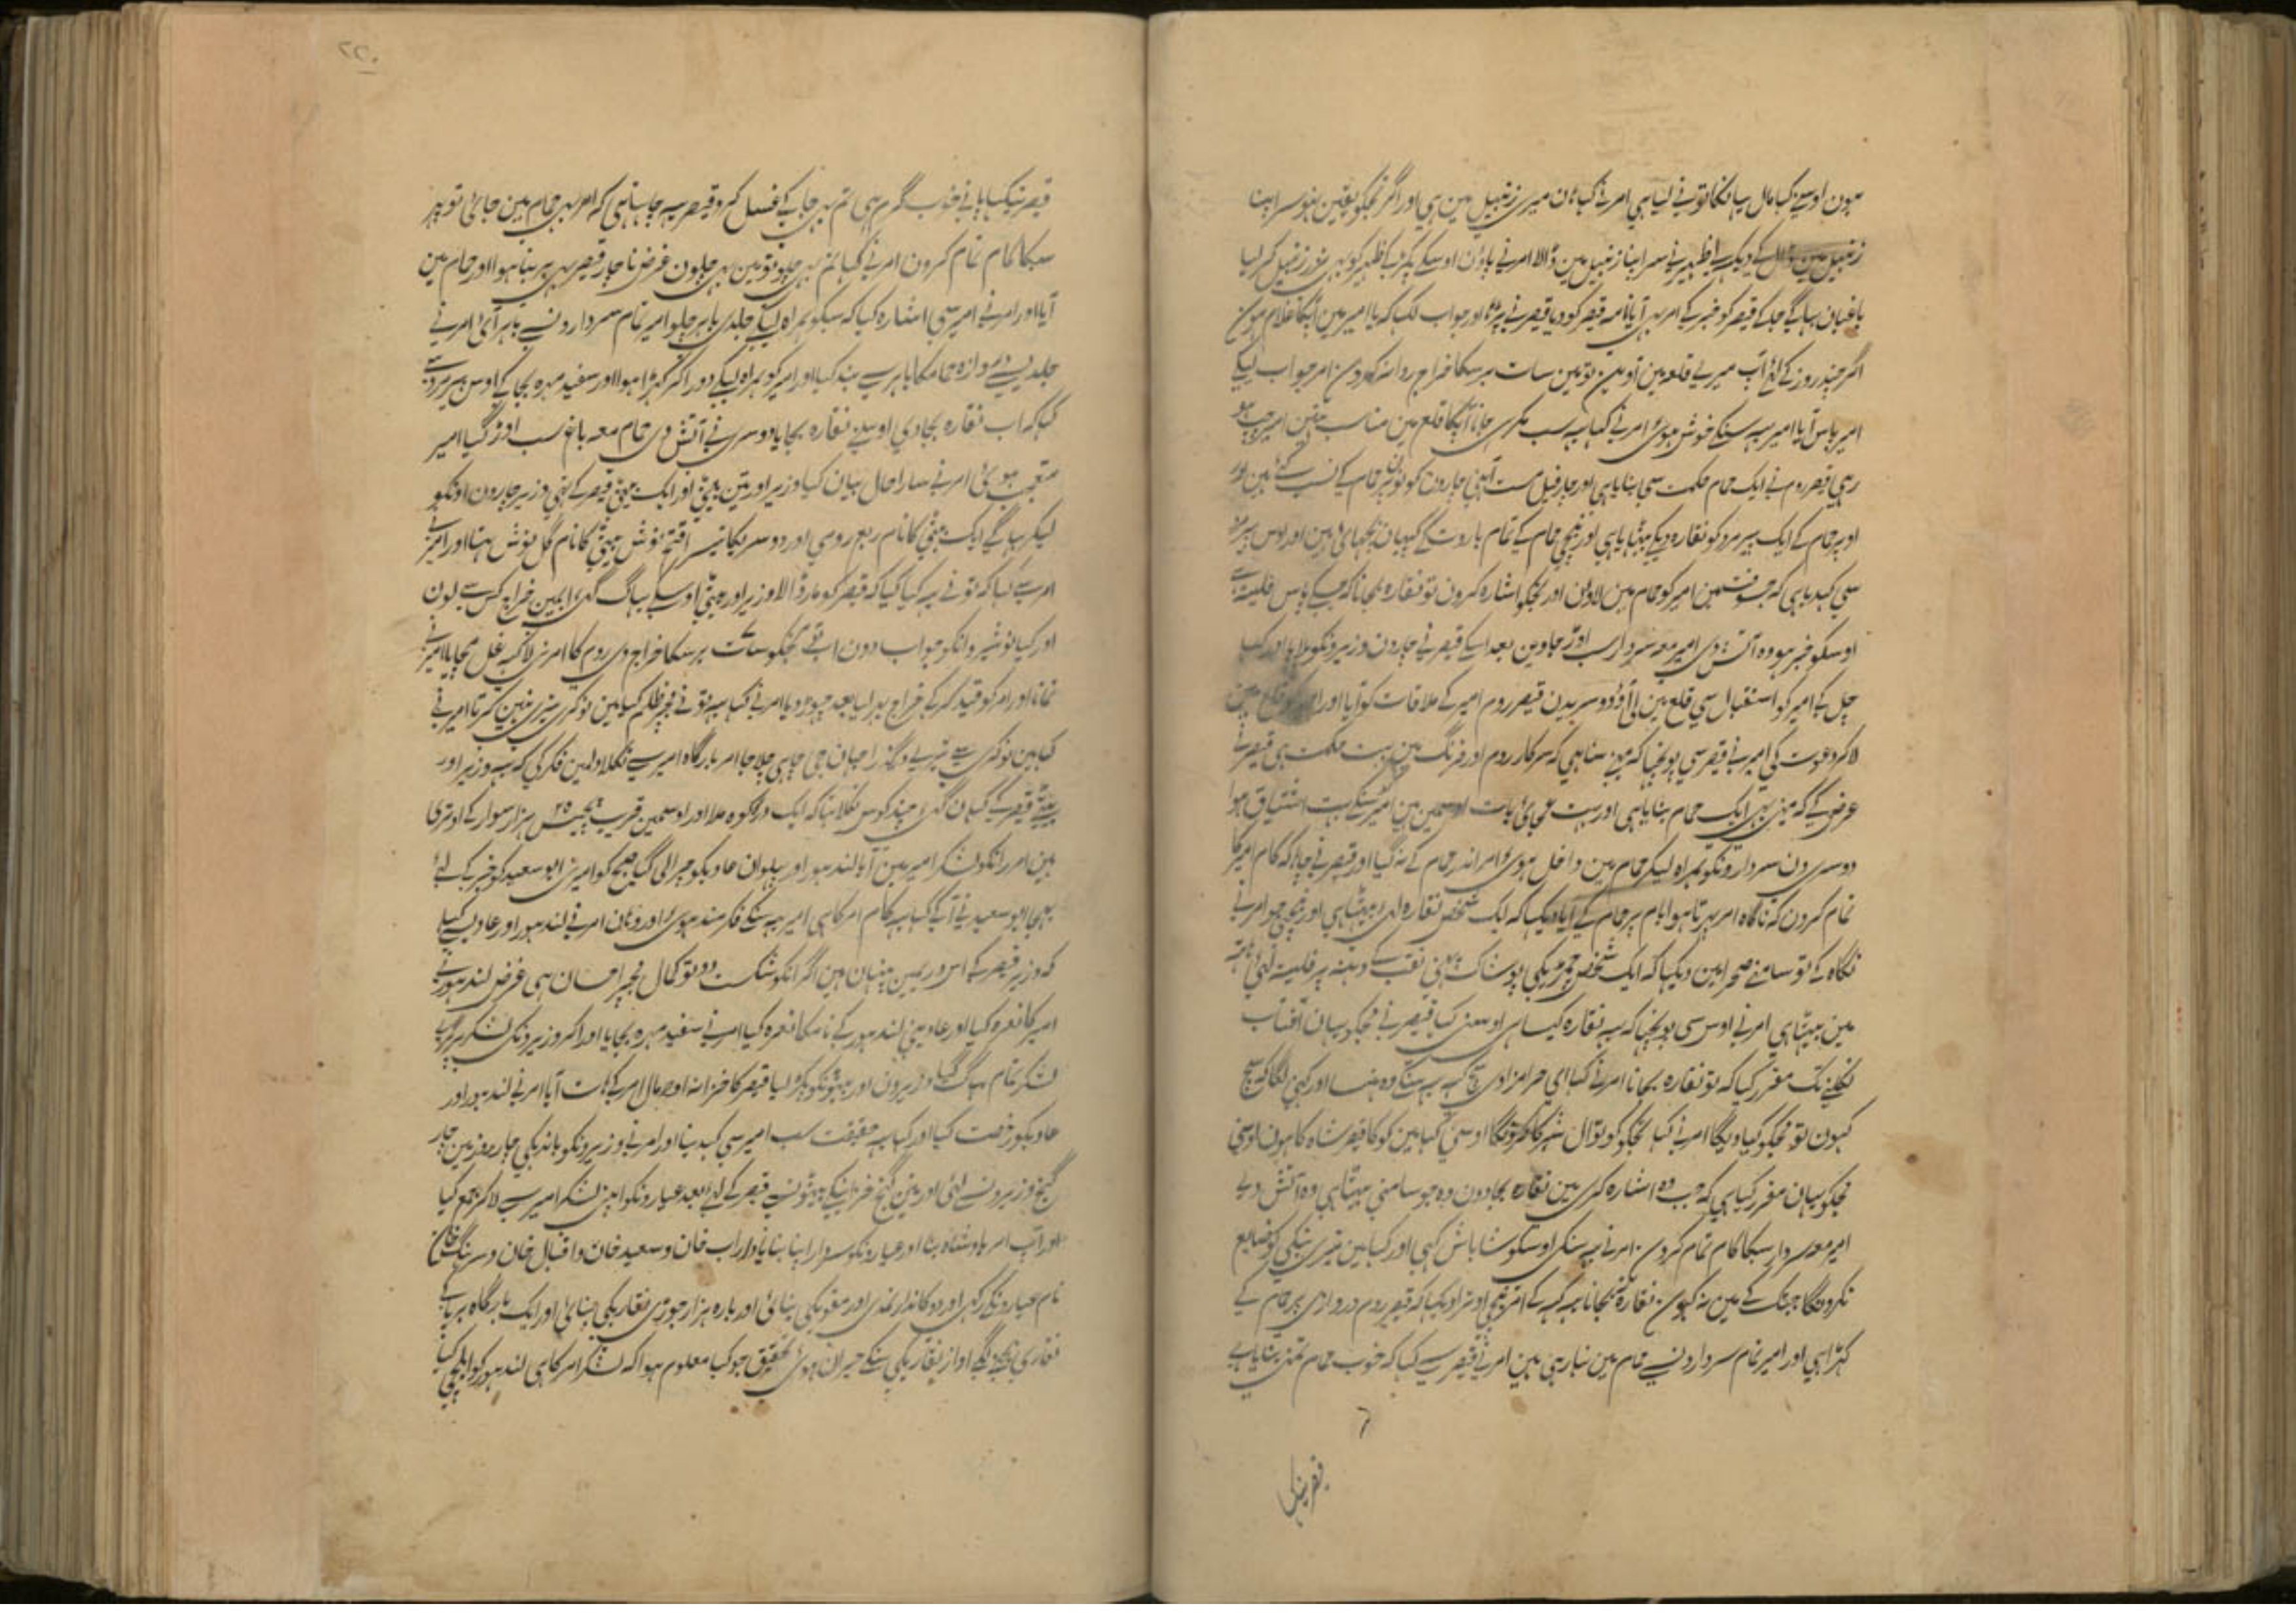 ہون اوسنے کہا مال یہانکا تو نے لیا ہی امر نے کہا ہان میری زنبیل مین ہی اور اگر تجکو یقین نہو سر اپنا
زنبیل مین ڈال کے دیکہہ لے اظہیر نے سر اپنا زنبیل مین ڈالا امر نے پاون اوسکے پکڑ کے اظہیر کو بہی نذر زنبیل کر لیا
باغبان بہاگے جا کے قیصر کو خبر کے امر بہی آیا نامہ قیصر کو دیا قیصر نے پڑہا اور جواب لکہا کہ یا امیر مین آپکا غلام ہون
اگر چند روز کے لئے آپ میرے قلعہ مین آو ہین تو مین سات برسکا خراج روانہ کرون امر جواب لیکے
امیر پاس آیا امیر یہہ سنکے خوش ہوئی امر نے کہا یہہ سب مکر ہی جانا آپکا قلع مین مناسب نہین امیر چپ ہو
رہی قیصر روم نے ایک حمام حکمت سی بنایا ہی اور چار فیل مست آہنی چارون کونون پر حمام کے نصب کئے ہین اور
اوپر حمام کے ایک پیر مرد کو نقارہ دیکے بیٹہایا ہی اور نیچی حمام کے تمام باروت کے کپیان بچہائی ہین اور اوس پیر مرد
سی کہدیا ہی کہ جسوقتمین امیر کو حمام مین لاون اور تجکو اشارہ کرون تو نقارہ بجانا کہ جسکے پاس فلیتہ ہے
اوسکو خبر ہو وہ آتش دی امیر معہ سردار سب اوڑ جاوین بعد اسکے قیصر نے چارون وزیرونکو بلایا اور کہا
چل کے امیر کو استقبال سی قلع مین لی آو دوسریدن قیصر روم امیر کے ملاقات کو آیا اور امیر کو قلع مین
لا کر دعوت کی امیر نے قیصر سی پونچہا کہ مینے سنا ہی کہ سرکار روم اور فرنگ مین بہت حکمت ہی قیصر نے
عرض کے کہ مینے بہی ایک حمام بنایا ہی اور بہت عجائبات اوسمین ہین امیر سنکے بہت اشتیاق ہوا
دوسری دن سردارونکو ہمراہ لیکر حمام مین داخل ہوئی امر اندر حمام کے نہ گیا اور قیصر نے چاہا کہ کام امیر کا
تمام کرون کہ ناگاہ امر پہرتا ہوا بام پر حمام کے آیا دیکہا کہ ایک شخص نقارہ لئے بیٹہا ہی اور نیچی جو امر نے
نگاہ کے تو سامنے صحرا مین دیکہا کہ ایک شخص چمڑیکی پوشاک پہنی نقب کے دہنہ پر فلیتہ لئی ہاتہہ
مین بیٹہا ہی امر نے اوس سی پونچہا کہ یہہ نقارہ کیسا ہی اوسنی کہا قیصر نے مجکو یہان آفتاب
نکلنے تک مقرر کیا کہ تو نقارہ بجانا امر نے کہا ای حرامزادی سچ کہہ یہہ سنکے وہ ہنسا اور کہنی لگا کہ سچ
کہون تو مجکو کیا دیگا امر نے کہا تجکو کوتوال شہر کا کرونگا اوسنی کہا مین کوکا قیصر شاہ کا ہون اوسنی
مجکو یہان مقرر کیا ہی کہ جب وہ اشارہ کری مین نقارہ بجادون وہ جو سامنی بیٹہا ہی وہ آتش دے
امیر معہ سردار سبکا کام تمام کرون امر نے یہہ سنکر اوسکو شاباش کہی اور کہا مین تیری نیکی کو ضایع
نکرونگا جبتک کے مین نہ کہون نقارہ نبجانا یہہ کہہ کے امر نیچی اوترا دیکہا کہ قیصر روم دروازی پر حمام کے
کہڑا ہی اور امیر تمام سردارونسے حمام مین نہا رہی ہین امر نے قیصر سے کہا کہ خوب حمام تمنے بنایا ہے
قیصر نیکہا پانے خوب گرم ہی تم بہی جا کے غسل کرو قیصر یہہ چاہتا ہی کہ امر بہی حمام مین جائی تو پہر
سبکا کام تمام کرون امر نے کہا تم بہی چلو تو مین بہی چلون غرض ناچار قیصر بہی برہنا ہوا اور حمام مین
آیا اور امر نے امیر سی اشارہ کیا کہ سبکو ہمراہ لیکے جلدی باہر چلو امیر تمام سردارونسے باہر آئی امر نے
جلدیسے دروازہ حمامکا باہر سے بند کیا اور امیر کو ہمراہ لیکے دور اکر کہڑا ہوا اور سفید مہرہ بجا کے اوس پیر مرد سے
کہا کہ اب نقارہ بجا دی اوسنے نقارہ بجایا دوسری نے آتش دی حمام معہ باغ سب اوڑ گیا امیر
متعجب ہوئی امر نے سارا حال بیان کیا وزیر اور تین بیٹے اور ایک بیٹی قیصر کے تہی وزیر چارون اونکو
لیکر بہاگے ایک بیٹے کا نام ربع رومی اور دوسریکا تیسرا فتح نوش بیٹی کا نام گل نوش تہا اور امیر نے
امر سے کہا کہ تو نے یہہ کیا کیا کہ قیصر کو مار ڈالا وزیر اور بیٹے اوسکے بہاگ گئی اب مین خراج کس سے لون
اور کیا نوشیروانکو جواب دون اب تو مجکو سات برسکا خراج دی روم کا امر نے لاکہہ غل مچایا امیر نے
نمانا اور امر کو قید کر کے خراج بہر لیا بعد چہوڑ دیا امر نے کہا یہہ تو نے مجپر ظلم کیا مین نوکری تیری نہین کرتا امیر نے
کہا مین نوکری سے تیرے درگذرا جہان جی چاہی چلا جا امر بارگاہ امیر سے نکلا دلمین فکر کی کہ یہہ وزیر اور
بیٹے قیصر کے کہان گئی چند کوس نکلا تہا کہ ایک درہ کوہ ملا اور اوسمین قریب پچیس ۲۵ ہزار سوار کے اوتری
ہین امر راتکو لشکر امیر مین آیا لندہور اور پہلوان عادیکو چرا لی گیا صبح کو امیر نے ابو سعید کو خبر کے لئے
بہیجا ابو سعید نے آ کے کہا یہہ کام امر کا ہی امیر یہہ سنکے فکر مند ہوئی اور وہان امر نے لندہور اور عادی سے کہا
کہ وزیر قیصر کے اس درہ مین پنہان ہین اگر انکو شکست دو تو کمال مجپر احسان ہی غرض لندہور نے
امیر کا نعرہ کیا اور عادینے لندہور کے نامکا نعرہ کیا امر نے سفید مہرہ بجایا اور اکر وزیرونکی لشکر پر گرے
لشکر تمام بہاگ گیا وزیرون اور بیٹونکو پکڑ لیا قیصر کا خزانہ اور مال امر کے ہات آیا امر نے لندہور اور
عادیکو رخصت کیا اور کہا یہہ حقیقت سب امیر سی کہدینا اور امر نے وزیرونکو باندہکی چار روز مین چار
گنج وزیرونسے لئی اور تین گنج خزانیکے بیٹونسے قیصر کے لئے بعد عیارونکو اپنی لشکر امیر سے لا کر جمع کیا
اور آپ امر بادشاہ بنا اور عیارونکو سردار اپنا بنایا داراب خان و سعید خان و اقبال خان و سرہنگ خان
نام عیارونکے رکہی اور دوکاندار نمدی اور مقویکی بنائی اور بارہ ہزار جوڑی نقاریکی بنائی اور ایک بارگاہ برپا کے
نقاری بجنے لگے آواز نقاریکی سنکے حیران ہوئی تحقیق جو کیا معلوم ہوا کہ لشکر امر کا ہی لندہور کو ایلچی کیا